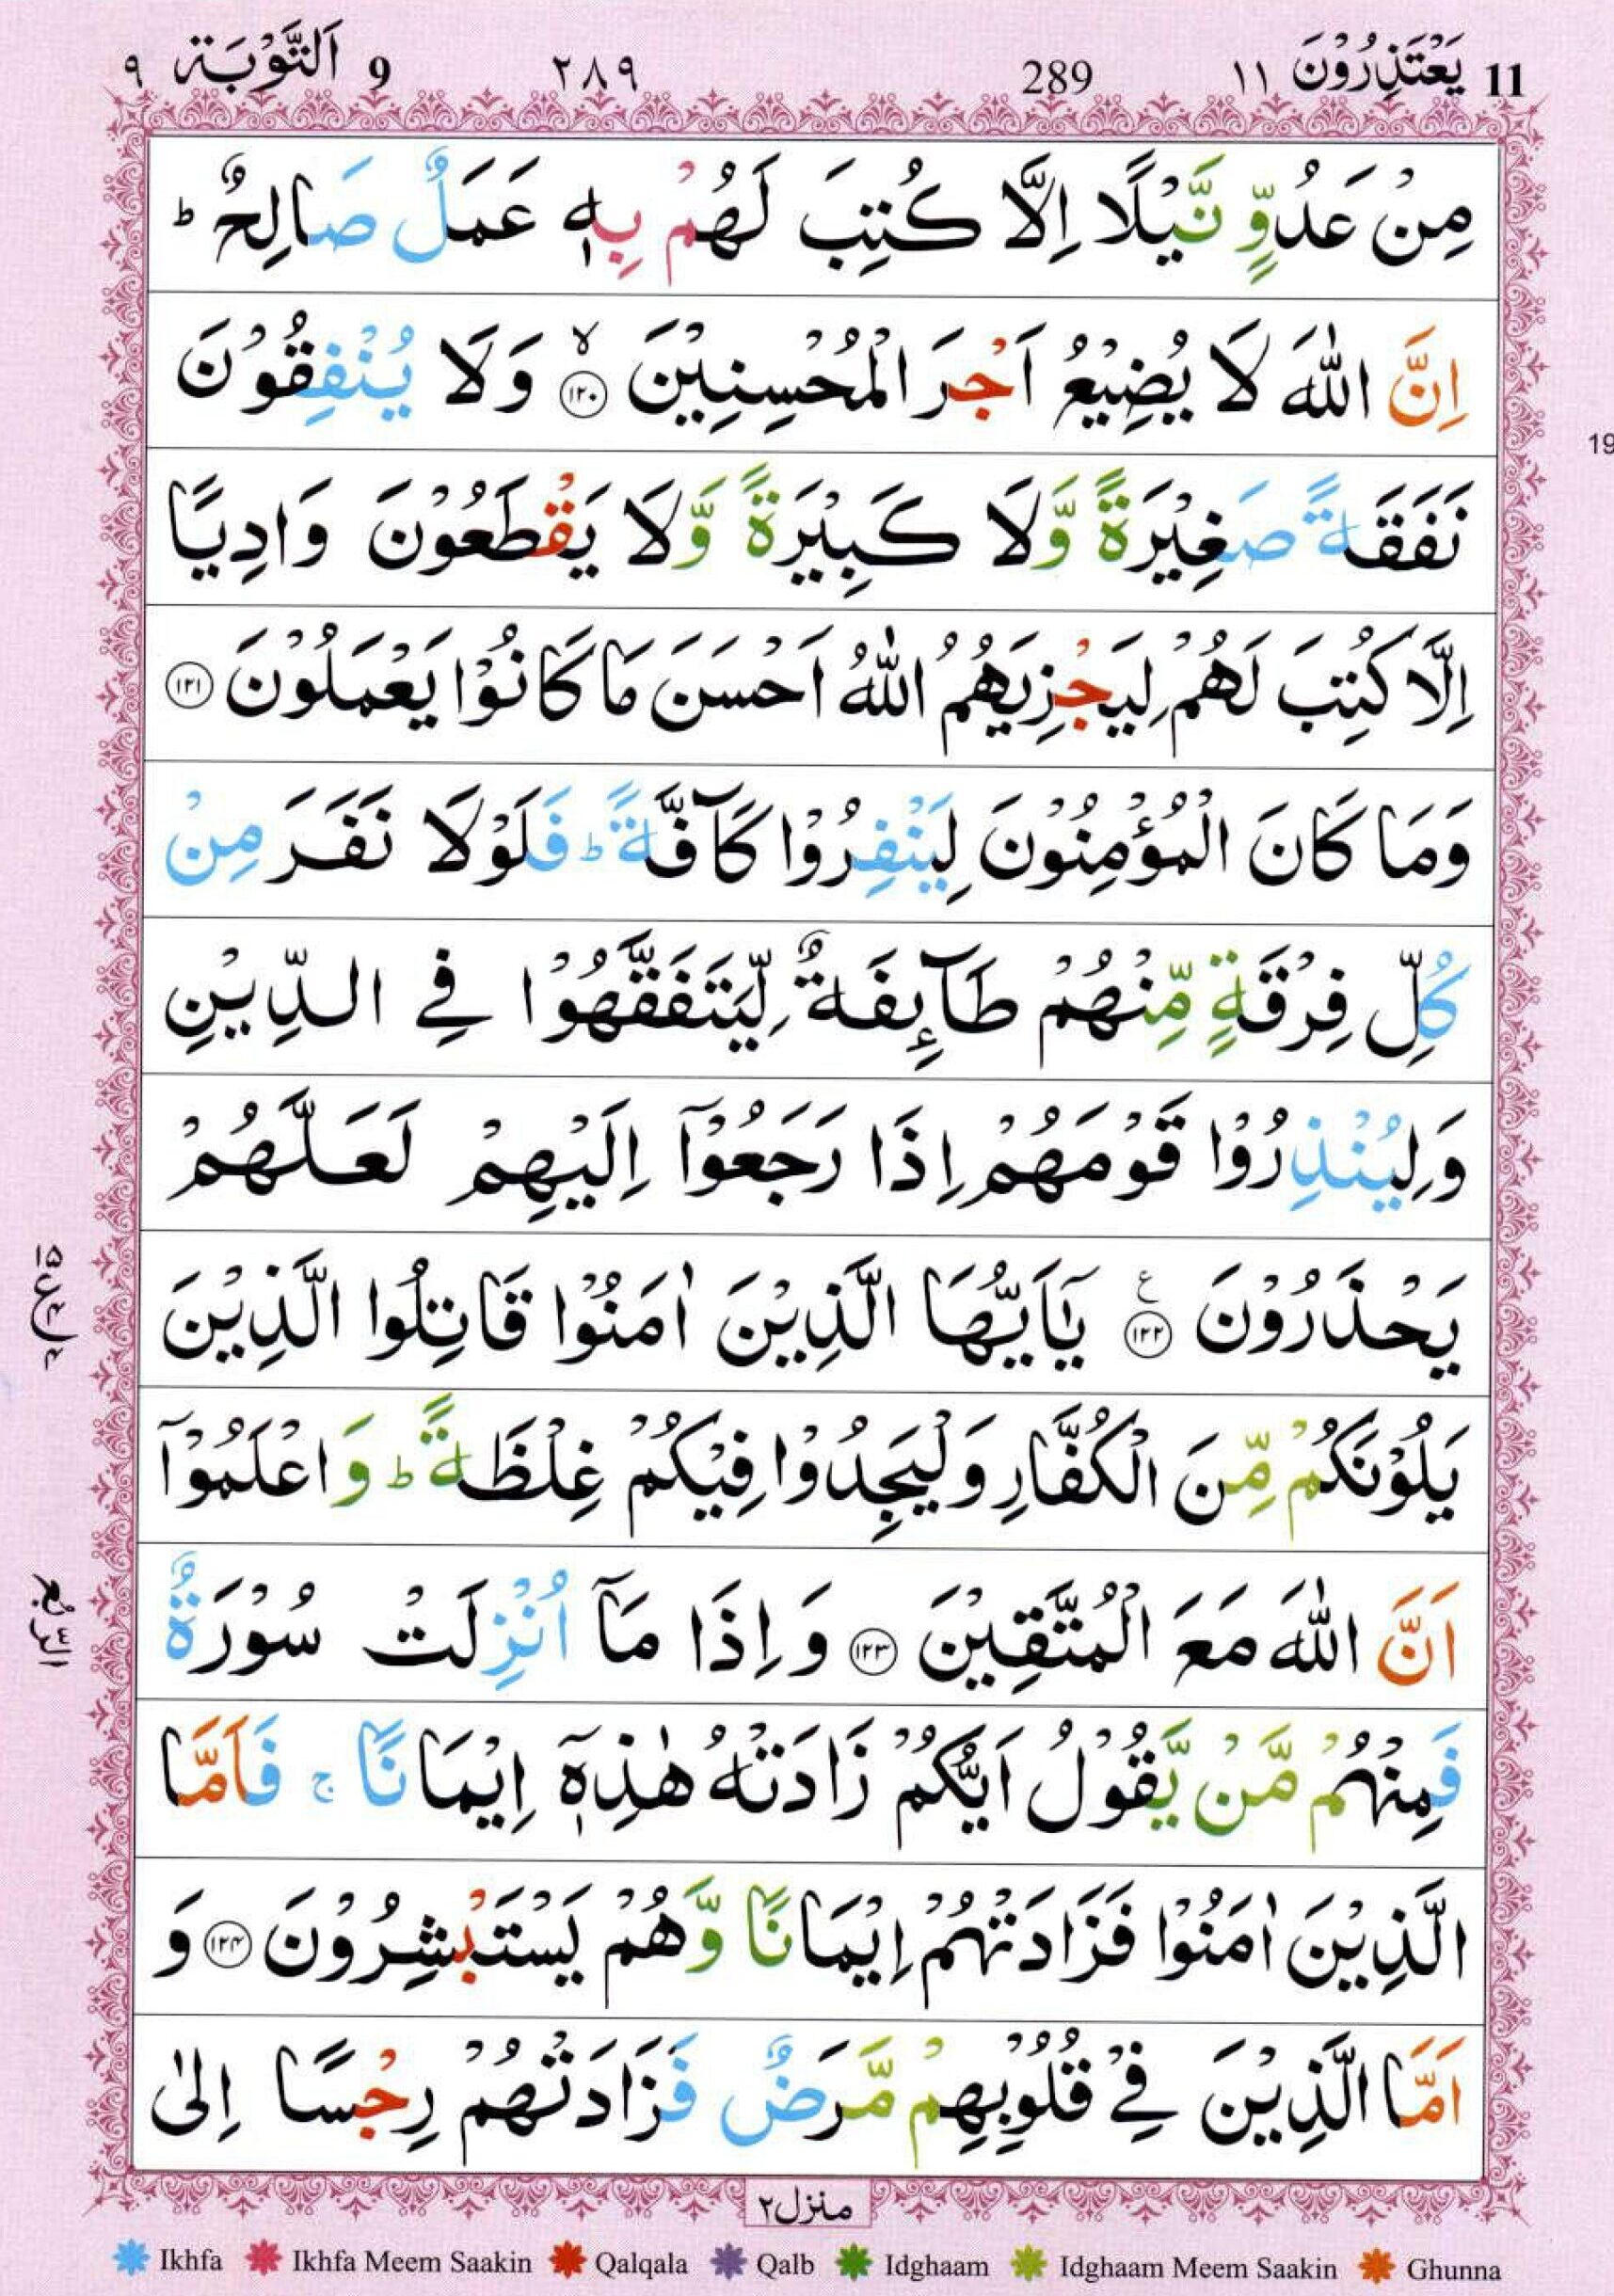 11 يَعْتَذِرُوْنَ ١١ 289 ٢٨٩ 9 اَلتَّوْبَة ٩
مِنْ عَدُوٍّ نَّيْلًا اِلَّا كُتِبَ لَهُمْ بِهٖ عَمَلٌ صَالِحٌ ؕ
اِنَّ اللّٰهَ لَا يُضِيْعُ اَجْرَ الْمُحْسِنِيْنَ ۙ﴿۱۲۰﴾ وَلَا يُنْفِقُوْنَ
19
نَفَقَةً صَغِيْرَةً وَّلَا كَبِيْرَةً وَّلَا يَقْطَعُوْنَ وَادِيًا
اِلَّا كُتِبَ لَهُمْ لِيَجْزِيَهُمُ اللّٰهُ اَحْسَنَ مَا كَانُوْا يَعْمَلُوْنَ ﴿۱۲۱﴾
وَمَا كَانَ الْمُؤْمِنُوْنَ لِيَنْفِرُوْا كَآفَّةً ؕ فَلَوْلَا نَفَرَ مِنْ
كُلِّ فِرْقَةٍ مِّنْهُمْ طَآىِٕفَةٌ لِّيَتَفَقَّهُوْا فِي الدِّيْنِ
وَلِيُنْذِرُوْا قَوْمَهُمْ اِذَا رَجَعُوْۤا اِلَيْهِمْ لَعَلَّهُمْ
يَحْذَرُوْنَ ﴿۱۲۲﴾ ع يٰۤاَيُّهَا الَّذِيْنَ اٰمَنُوْا قَاتِلُوا الَّذِيْنَ
يَلُوْنَكُمْ مِّنَ الْكُفَّارِ وَلْيَجِدُوْا فِيْكُمْ غِلْظَةً ؕ وَاعْلَمُوْۤا
اَنَّ اللّٰهَ مَعَ الْمُتَّقِيْنَ ﴿۱۲۳﴾ وَاِذَا مَاۤ اُنْزِلَتْ سُوْرَةٌ
فَمِنْهُمْ مَّنْ يَّقُوْلُ اَيُّكُمْ زَادَتْهُ هٰذِهٖۤ اِيْمَانًا ۚ فَاَمَّا
الَّذِيْنَ اٰمَنُوْا فَزَادَتْهُمْ اِيْمَانًا وَّهُمْ يَسْتَبْشِرُوْنَ ﴿۱۲۴﴾ وَ
اَمَّا الَّذِيْنَ فِيْ قُلُوْبِهِمْ مَّرَضٌ فَزَادَتْهُمْ رِجْسًا اِلٰى
منزل ٢
Ikhfa Ikhfa Meem Saakin Qalqala Qalb Idghaam Idghaam Meem Saakin Ghunna